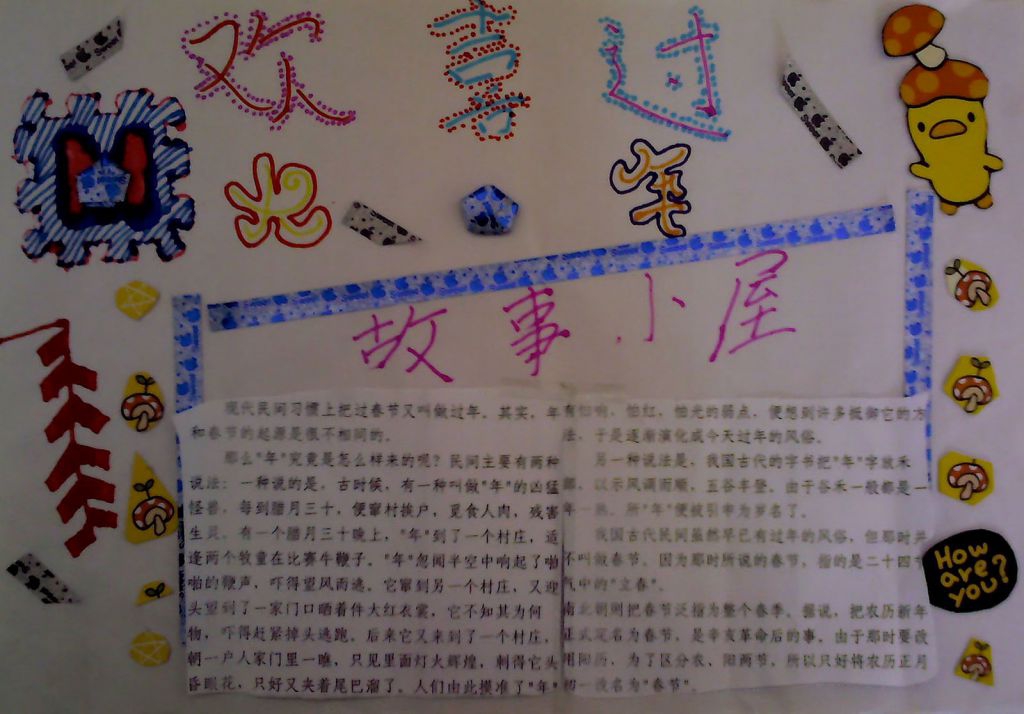 欢 喜 过
年
故事小屋
现代民间习惯上把过春节又叫做过年。其实，年
和春节的起源是很不相同的。
那么"年"究竟是怎么样来的呢？民间主要有两种
说法：一种说的是，古时候，有一种叫做"年"的凶猛
怪兽，每到腊月三十，便窜村挨户，觅食人肉，残害
生灵。有一个腊月三十晚上，"年"到了一个村庄，适
逢两个牧童在比赛牛鞭子。"年"忽闻半空中响起了啪
啪的鞭声，吓得望风而逃。它窜到另一个村庄，又迎
头望到了一家门口晒着件大红衣裳，它不知其为何
物，吓得赶紧掉头逃跑。后来它又来到了一个村庄，
朝一户人家门里一瞧，只见里面灯火辉煌，刺得它头
昏眼花，只好又夹着尾巴溜了。人们由此摸准了"年"
有怕响，怕红，怕光的弱点，便想到许多抵御它的方
法，于是逐渐演化成今天过年的风俗。
另一种说法是，我国古代的字书把"年"字放禾
部，以示风调雨顺，五谷丰登。由于谷禾一般都是一
年一熟。所"年"便被引申为岁名了。
我国古代民间虽然早已有过年的风俗，但那时并
不叫做春节。因为那时所说的春节，指的是二十四节
气中的"立春"。
南北朝则把春节泛指为整个春季。据说，把农历新年
正式定名为春节，是辛亥革命后的事。由于那时要改
用阳历，为了区分农、阳两节，所以只好将农历正月
初一改名为"春节"。
How
are
you?